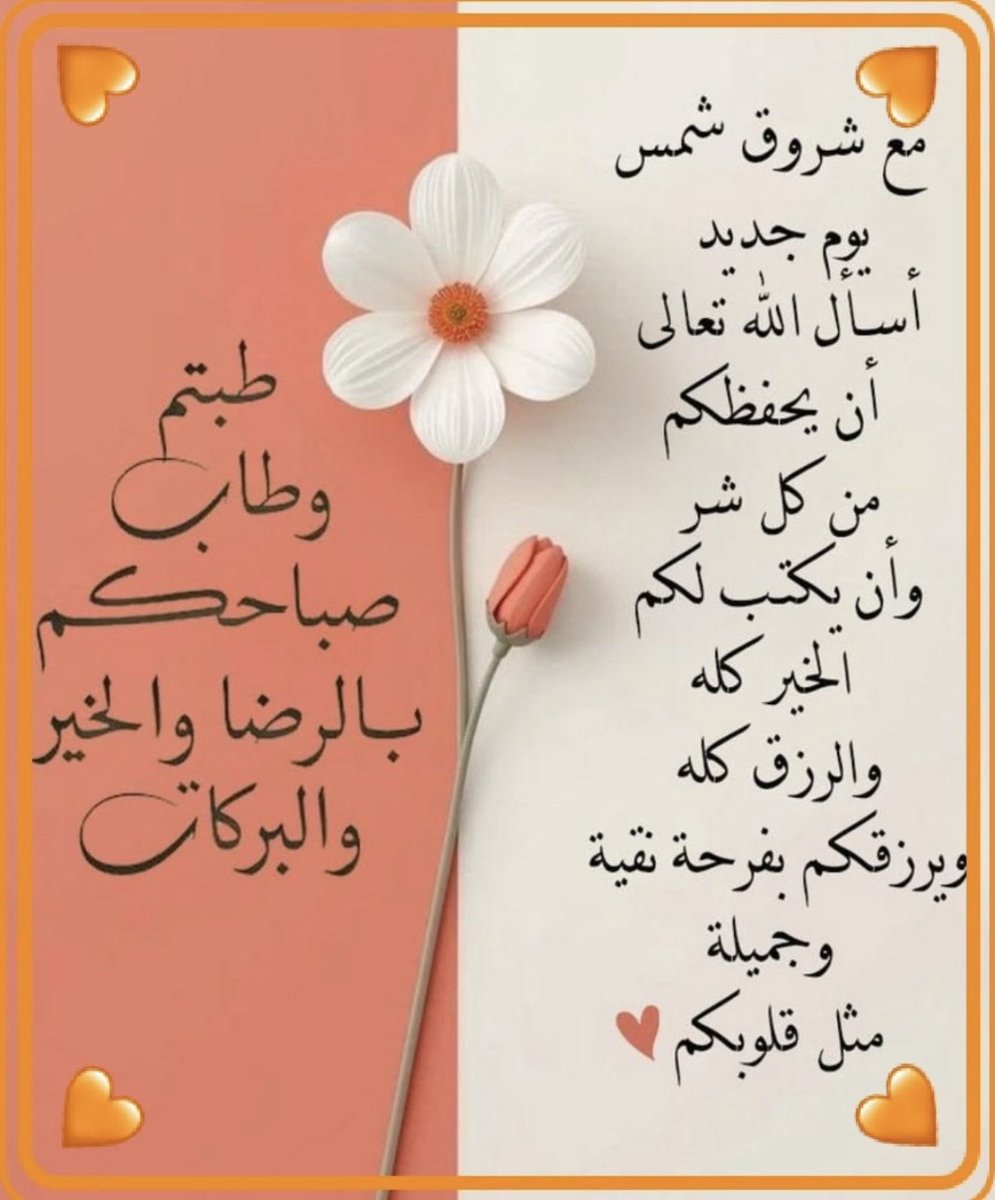 مع شروق شمس
يوم جديد
أسأل الله تعالى
أن يحفظكم
من كل شر
وأن يكتب لكم
الخير كله
والرزق كله
ويرزقكم بفرحة نقية
وجميلة
مثل قلوبكم
طبتم
وطاب
صباحكم
بالرضا والخير
والبركات